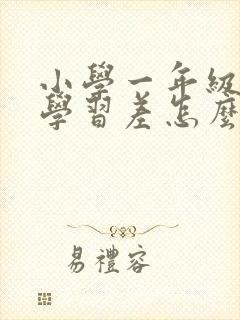 小學一年級
學習差怎麼
易禮容